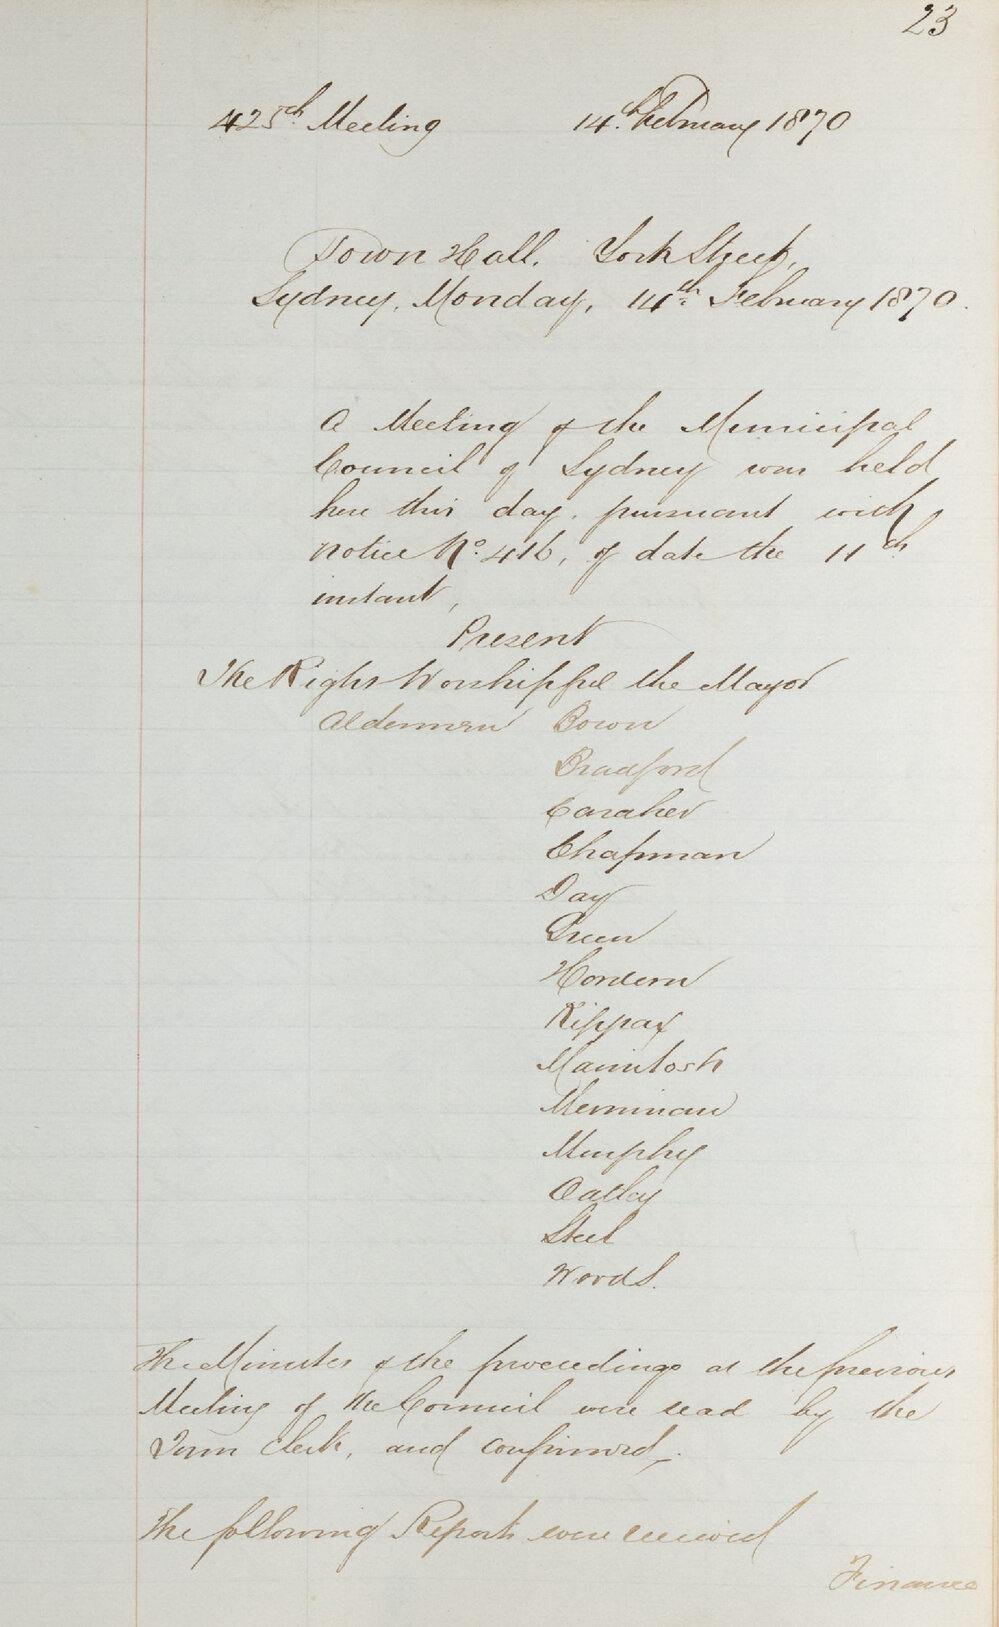 23
425th Meeting 14th February 1870
Town Hall. York Street,
Sydney, Monday, 14th February 1870.
A Meeting of the Municipal
Council of Sydney was held
here this day, pursuant with
notice No. 416, of date the 11th
instant,
Present
The Right Worshipful the Mayor
Aldermen Bown
Bradford
Caraher
Chapman
Day
Green
Hordern
Kippax
Macintosh
Merriman
Murphy
Oatley
Steel
Woods.
The Minutes of the proceedings at the previous
Meeting of the Council were read by the
Town Clerk, and confirmed,
The following Reports were received
Finance